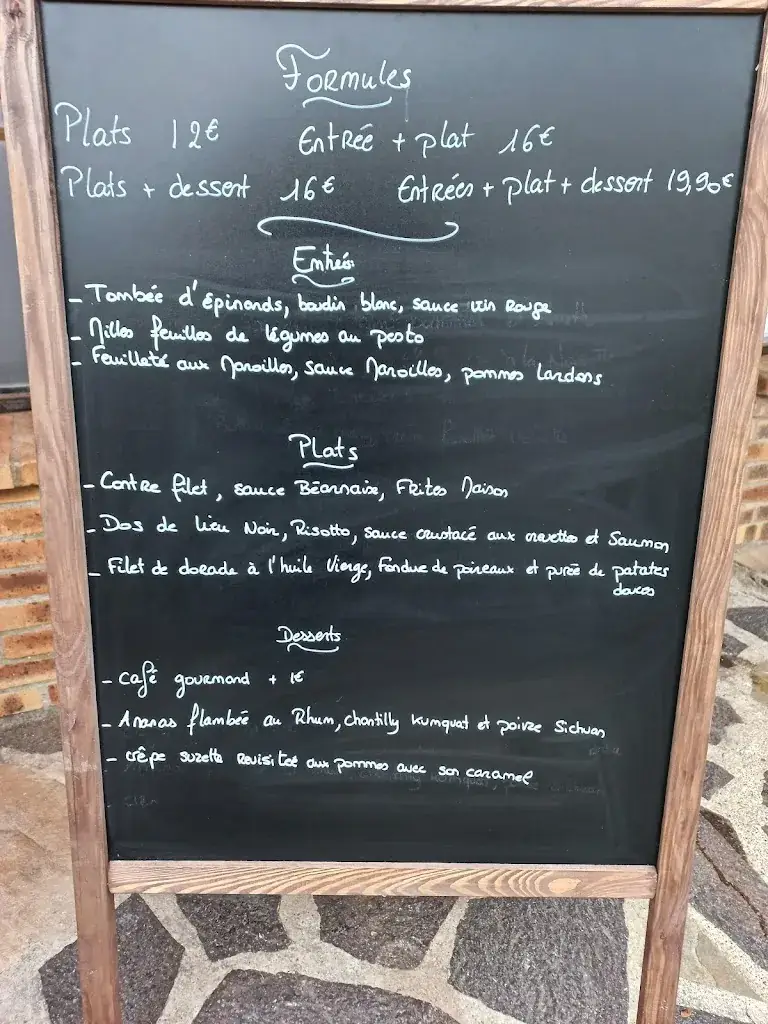 Formules
Plats 12€ Entrée + plat 16€
Plats + dessert 16€ Entrées + plat + dessert 19,90€
Entrées
- Tombée d'épinards, boudin blanc, sauce vin Rouge
- Milles feuilles de légumes au pesto
- Feuilleté aux Maroilles, sauce Maroilles, pommes Lardons
Plats
- Contre filet, sauce Béarnaise, Frites Maison
- Dos de lieu Noir, Risotto, sauce crustacé aux crevettes et Saumon
- Filet de dorade à l'huile Vierge, Fondue de poireaux et purée de patates
douces
Desserts
- Café gourmand + 1€
- Ananas flambée au Rhum, chantilly kumquat et poivre Sichuan
- crêpe suzette Revisiteé aux pommes avec son caramel